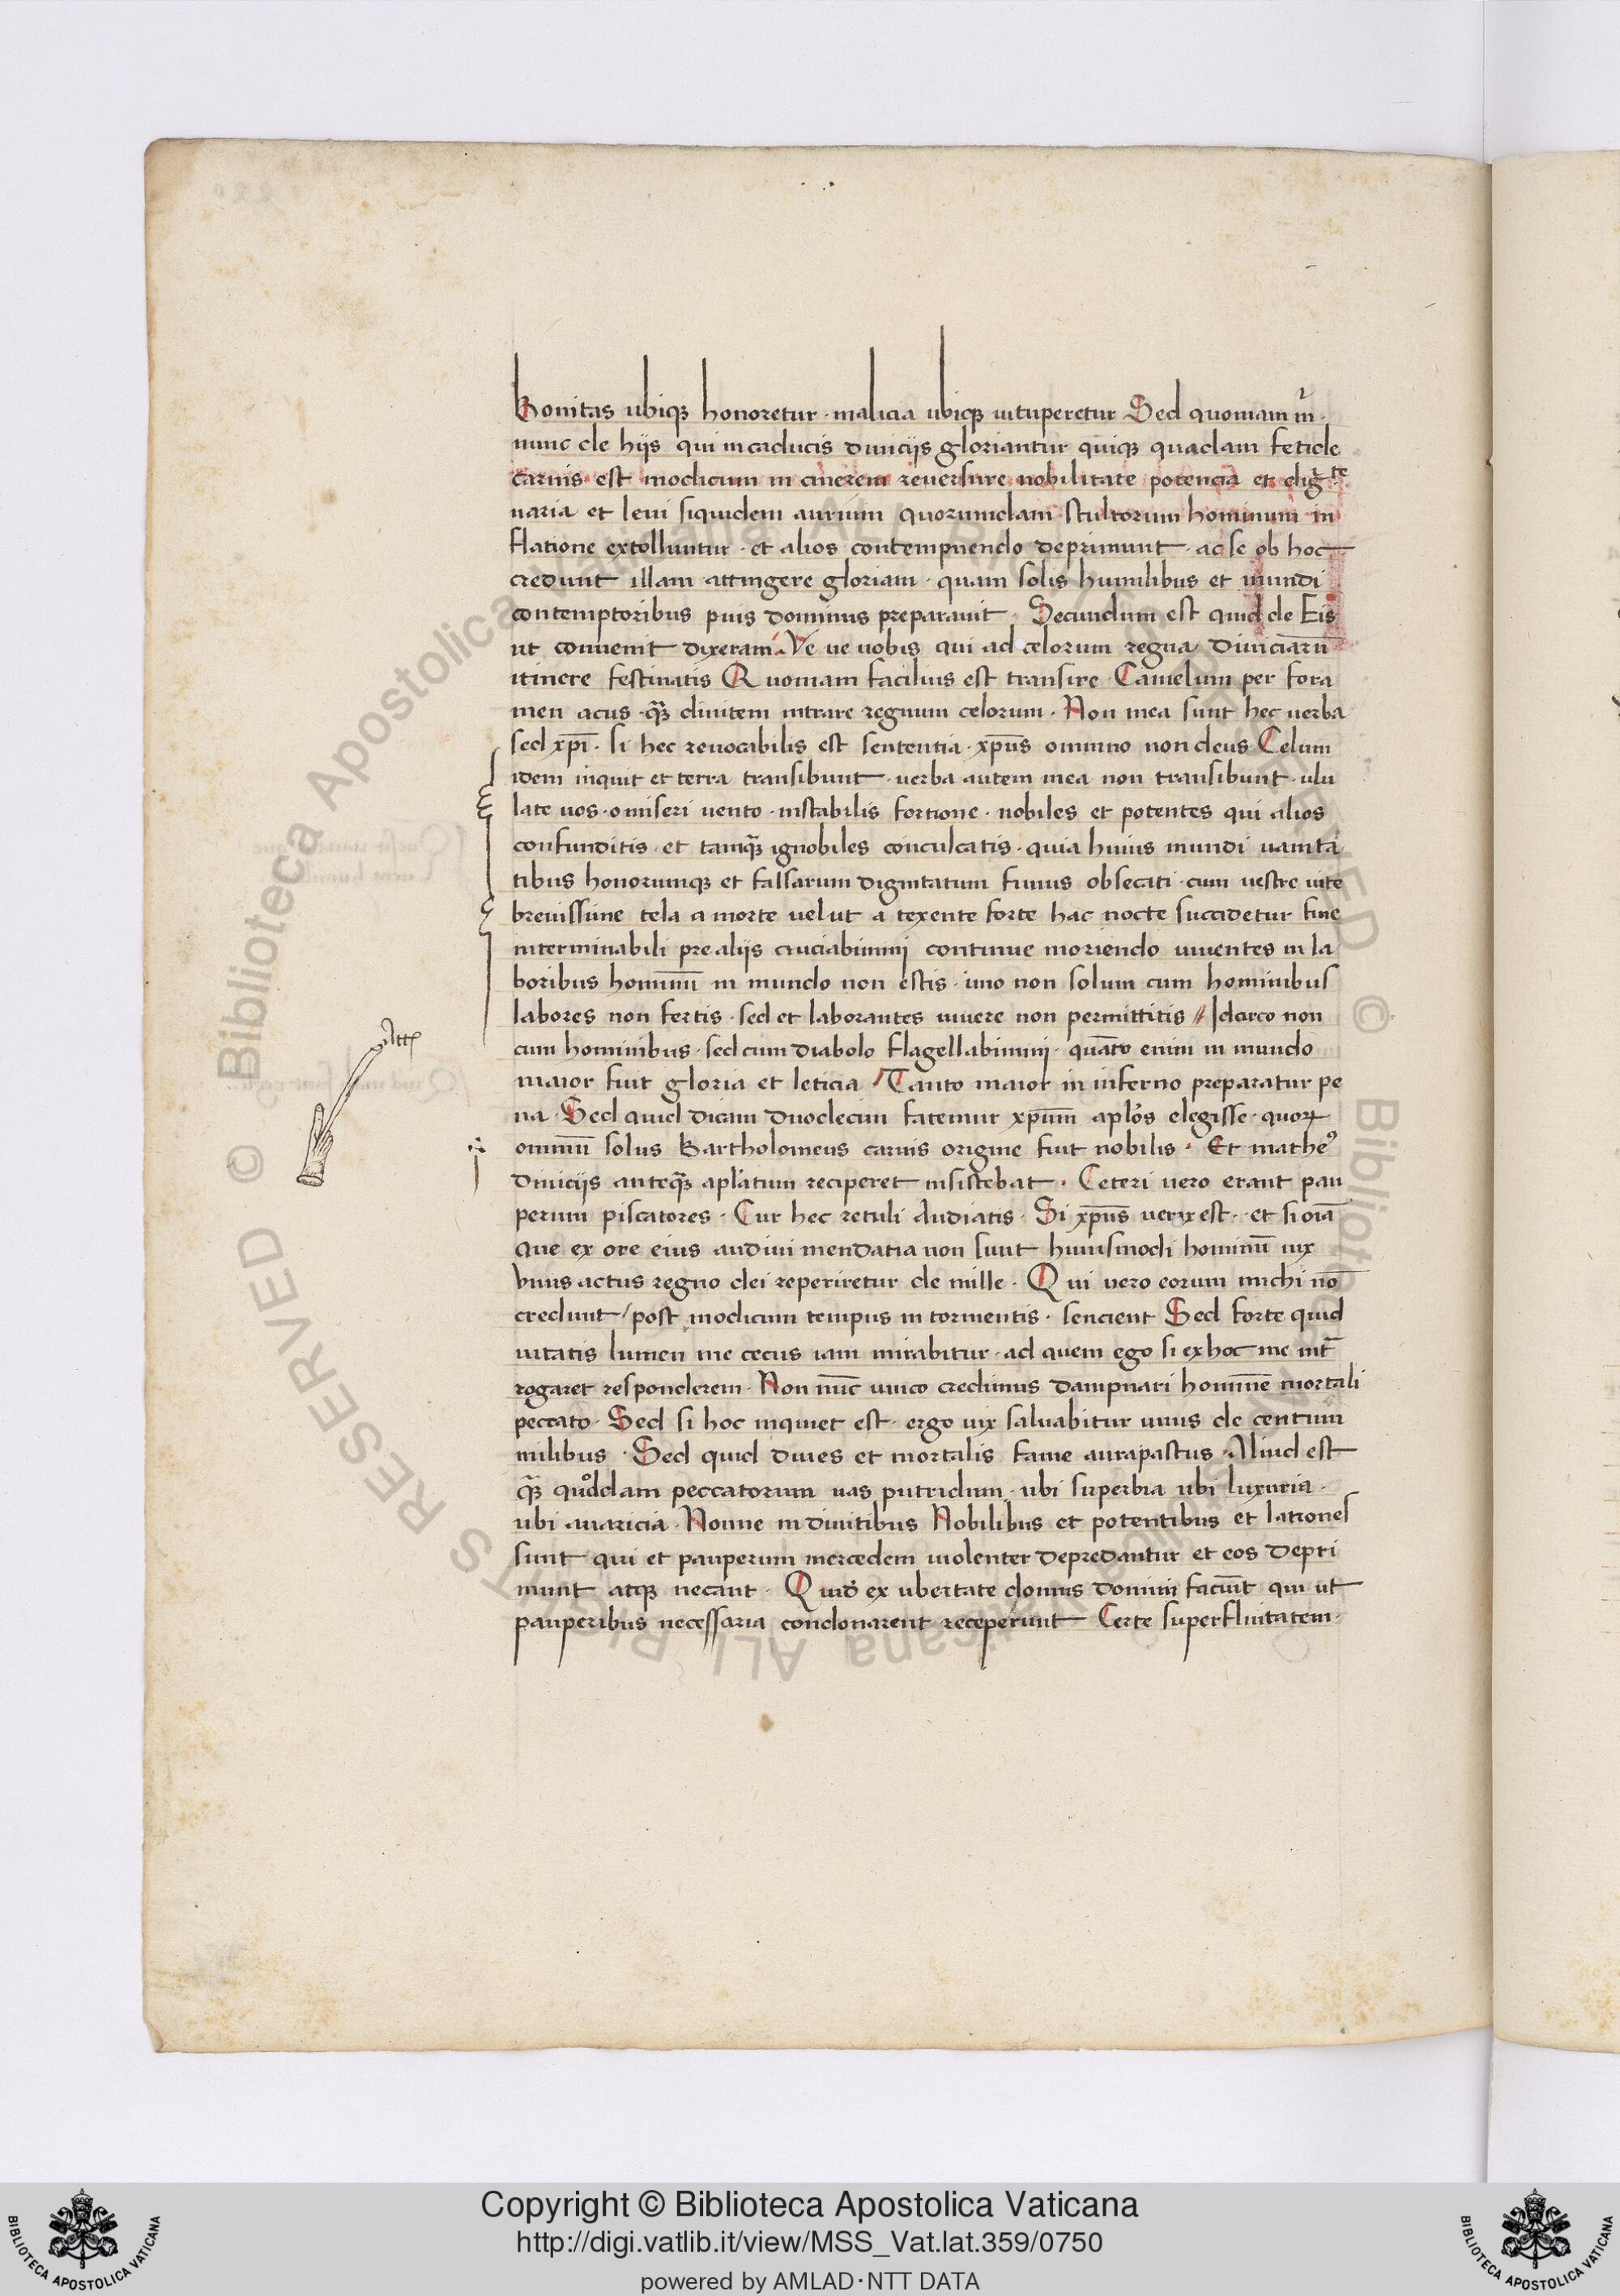 Bonitas ubiqꝫ honoretur · malicia ubiqꝫ uituperetur Sed quoniam
nunc de hijs qui in caducis diuicijs gloriantur quiqꝫ quadam fetide
carnis est modicum in cinerem reuersure nobilitate potencia et
uaria et leui siquidem aurium quorumdam stultorum hominum in
flatione extolluntur · et alios contempnendo deprimunt · ac se ob hoc
credunt illam attingere gloriam · quam solis humilibus et mundi
contemptoribus puis dominus preparauit · Secundum est quid de Eis
ut conuenit dixeram Ve ue uobis qui ad celorum regna diuiciarū
itinere festinatis Quoniam facilius est transire Camelum per fora
men acus · qꝫ̄ diuitem intrare regnum celorum · Non mea sunt hec uerba
sed xp̄i · si hec reuocabilis est sententia · xp̄us omnino non deus Celum
idem inquit et terra transibunt · uerba autem mea non transibunt · ulu
late uos · o miseri uento · instabilis fortione · nobiles et potentes qui alios
confunditis · et tamqꝫ̄ ignobiles conculcatis · quia huius mundi uanita
tibus honorumqꝫ et falsarum dignitatum fumus obsecati · cum uestre uite
breuissime tela a morte uel ut a texente forte hac nocte succidetur fine
interminabili pre alijs cruciabimini continue moriendo uiuentes in la
boribus hominū in mundo non estis · imo non solum cum hominibus
labores non fertis · sed et laborantes uiuere non permittitis // Idcirco non
cum hominibus · sed cum diabolo flagellabimini · quāto enim in mundo
maior fuit gloria et leticia / Tanto maior in inferno preparatur pe
na · Sed quid dicam duodecim fatemur xp̄um apl̄os elegisse · quoꝝ
omniū solus Bartholomeus carnis origine fuit nobilis · Et matheꝰ
diuicijs anteqꝫ̄ apl̄atum reciperet insistebat · Ceteri uero erant pau
perum piscatores · Cur hec retuli Audiatis · Si xp̄us uerax est · et si oīa
que ex ore eius audiui mendatia non sunt huiusmodi hominū uix
vnus actus regno dei reperiretur de mille · Qui uero eorum michi nō
credunt / post modicum tempus in tormentis · sencient Sed forte quid
uitatis lumen me cecus iam mirabitur · ad quem ego si ex hoc me int̄
rogaret responderem · Non nūc unico credimus dampnari hominē mortali
peccato · Sed si hoc inquiet est · ergo uix saluabitur unus de centum
milibus · Sed quid diues et mortalis fame aura pastus · Aliud est
qꝫ̄ quoddam peccatorum uas putridum · ubi superbia ubi luxuria ·
ubi auaricia · Nonne in diuitibus Nobilibus et potentibus et lationes
sunt qui et pauperum mercedem uiolenter depredantur et eos depri
munt atqꝫ necant · Quid ex ubertate domus domini faciūt qui ut
pauperibus necessaria condonarent receperunt Certe superfluitatem ·
Copyright © Biblioteca Apostolica Vaticana
http://digi.vatlib.it/view/MSS_Vat.lat.359/0750
powered by AMLAD·NTT DATA
BIBLIOTECA APOSTOLICA VATICANA
BIBLIOTECA APOSTOLICA VATICANA